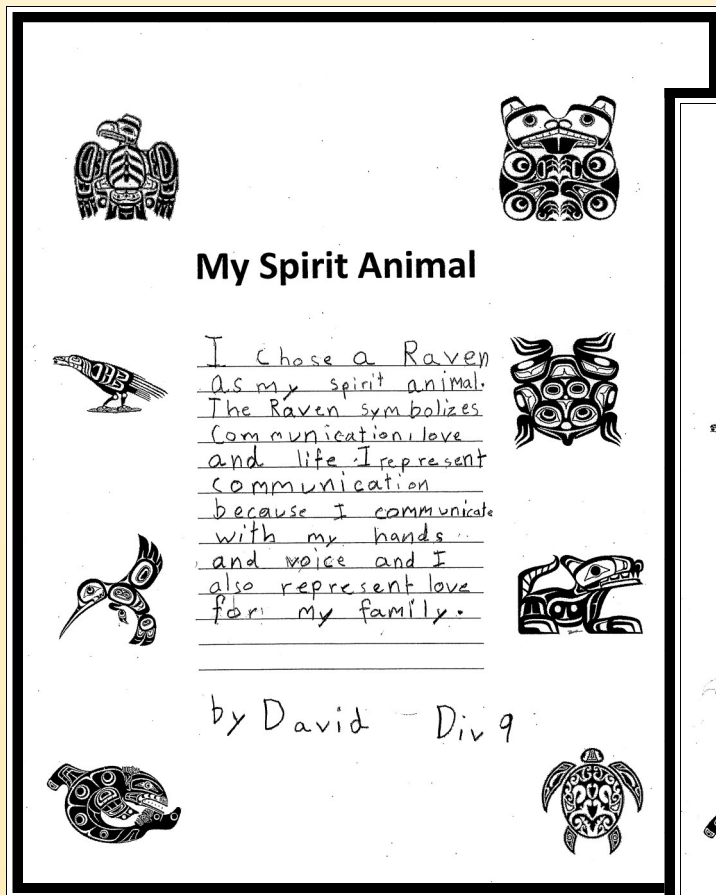 My Spirit Animal
I chose a Raven
as my spirit animal.
The Raven symbolizes
Communication, love
and life. I represent
communication
because I communicate
with my hands
and voice and I
also represent love
for my family.
by David - Div 9